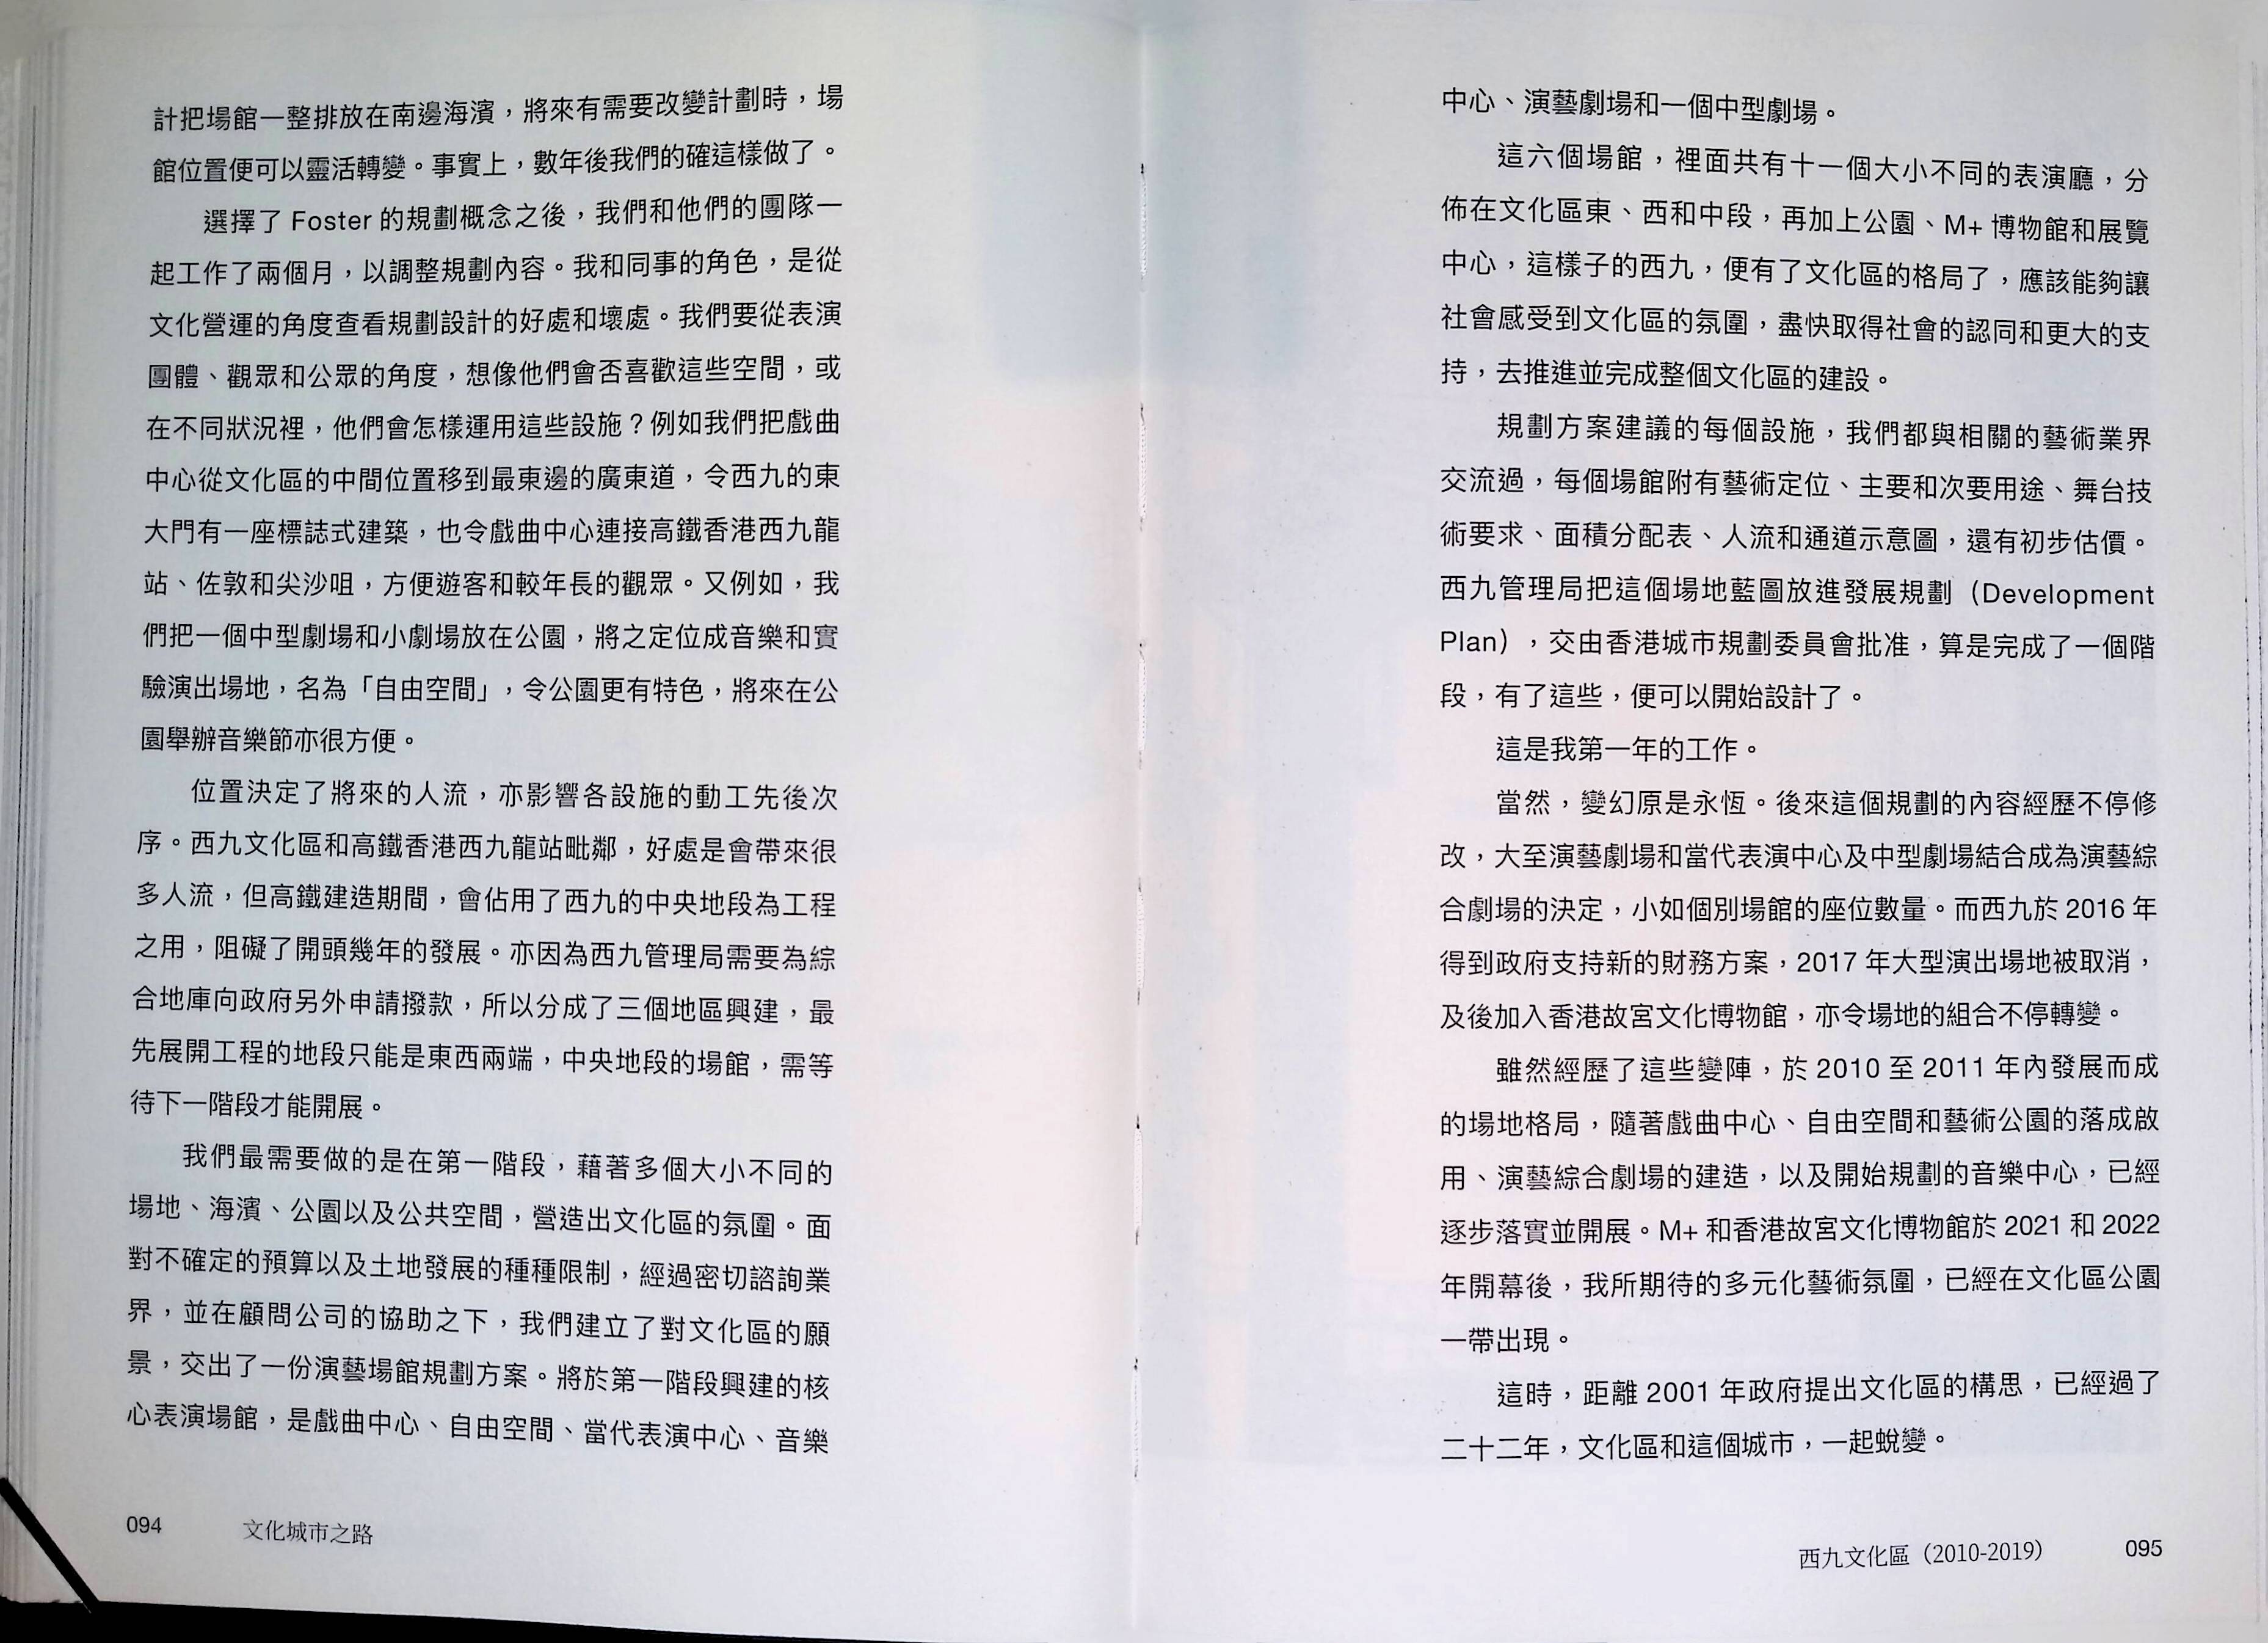 計把場館一整排放在南邊海濱，將來有需要改變計劃時，場
館位置便可以靈活轉變。事實上，數年後我們的確這樣做了。
選擇了 Foster 的規劃概念之後，我們和他們的團隊一
起工作了兩個月，以調整規劃內容。我和同事的角色，是從
文化營運的角度查看規劃設計的好處和壞處。我們要從表演
團體、觀眾和公眾的角度，想像他們會否喜歡這些空間，或
在不同狀況裡，他們會怎樣運用這些設施？例如我們把戲曲
中心從文化區的中間位置移到最東邊的廣東道，令西九的東
大門有一座標誌式建築，也令戲曲中心連接高鐵香港西九龍
站、佐敦和尖沙咀，方便遊客和較年長的觀眾。又例如，我
們把一個中型劇場和小劇場放在公園，將之定位成音樂和實
驗演出場地，名為「自由空間」，令公園更有特色，將來在公
園舉辦音樂節亦很方便。
位置決定了將來的人流，亦影響各設施的動工先後次
序。西九文化區和高鐵香港西九龍站毗鄰，好處是會帶來很
多人流，但高鐵建造期間，會佔用了西九的中央地段為工程
之用，阻礙了開頭幾年的發展。亦因為西九管理局需要為綜
合地庫向政府另外申請撥款，所以分成了三個地區興建，最
先展開工程的地段只能是東西兩端，中央地段的場館，需等
待下一階段才能開展。
我們最需要做的是在第一階段，藉著多個大小不同的
場地、海濱、公園以及公共空間，營造出文化區的氛圍。面
對不確定的預算以及土地發展的種種限制，經過密切諮詢業
界，並在顧問公司的協助之下，我們建立了對文化區的願
景，交出了一份演藝場館規劃方案。將於第一階段興建的核
心表演場館，是戲曲中心、自由空間、當代表演中心、音樂
094 文化城市之路
中心、演藝劇場和一個中型劇場。
這六個場館，裡面共有十一個大小不同的表演廳，分
佈在文化區東、西和中段，再加上公園、M+ 博物館和展覽
中心，這樣子的西九，便有了文化區的格局了，應該能夠讓
社會感受到文化區的氛圍，盡快取得社會的認同和更大的支
持，去推進並完成整個文化區的建設。
規劃方案建議的每個設施，我們都與相關的藝術業界
交流過，每個場館附有藝術定位、主要和次要用途、舞台技
術要求、面積分配表、人流和通道示意圖，還有初步估價。
西九管理局把這個場地藍圖放進發展規劃（Development
Plan），交由香港城市規劃委員會批准，算是完成了一個階
段，有了這些，便可以開始設計了。
這是我第一年的工作。
當然，變幻原是永恆。後來這個規劃的內容經歷不停修
改，大至演藝劇場和當代表演中心及中型劇場結合成為演藝綜
合劇場的決定，小如個別場館的座位數量。而西九於 2016 年
得到政府支持新的財務方案，2017 年大型演出場地被取消，
及後加入香港故宮文化博物館，亦令場地的組合不停轉變。
雖然經歷了這些變陣，於 2010 至 2011 年內發展而成
的場地格局，隨著戲曲中心、自由空間和藝術公園的落成啟
用、演藝綜合劇場的建造，以及開始規劃的音樂中心，已經
逐步落實並開展。M+ 和香港故宮文化博物館於 2021 和 2022
年開幕後，我所期待的多元化藝術氛圍，已經在文化區公園
一帶出現。
這時，距離 2001 年政府提出文化區的構思，已經過了
二十二年，文化區和這個城市，一起蛻變。
西九文化區（2010-2019） 095